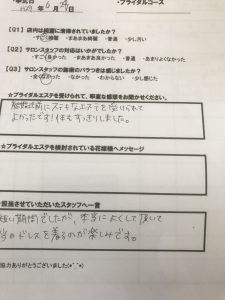 ・挙式日 H29年 6月
・ブライダルコース
【Q1】店内は綺麗に清掃されていましたか?
・すごく綺麗 ・まあまあ綺麗 ・普通 ・少し汚い
【Q2】サロンスタッフの対応はいかがでしたか?
・すごく良かった ・まあまあ良かった ・普通 ・あまりよくなかった
【Q3】サロンスタッフの施術のバラつきは感じましたか?
・全くなかった ・なかった ・わからない ・少し感じた
★ブライダルエステを受けられて、率直な感想をお聞かせください。
結婚式前にステキなエステを受けられて
よかったです!体もすっきりしました。
★ブライダルエステを検討されている花嫁様へメッセージ
★担当させていただいたスタッフへ一言
短い期間でしたが、本当によくして頂いて
当日ドレスを着るのが楽しみです。
協力ありがとうございました(*^_^*)